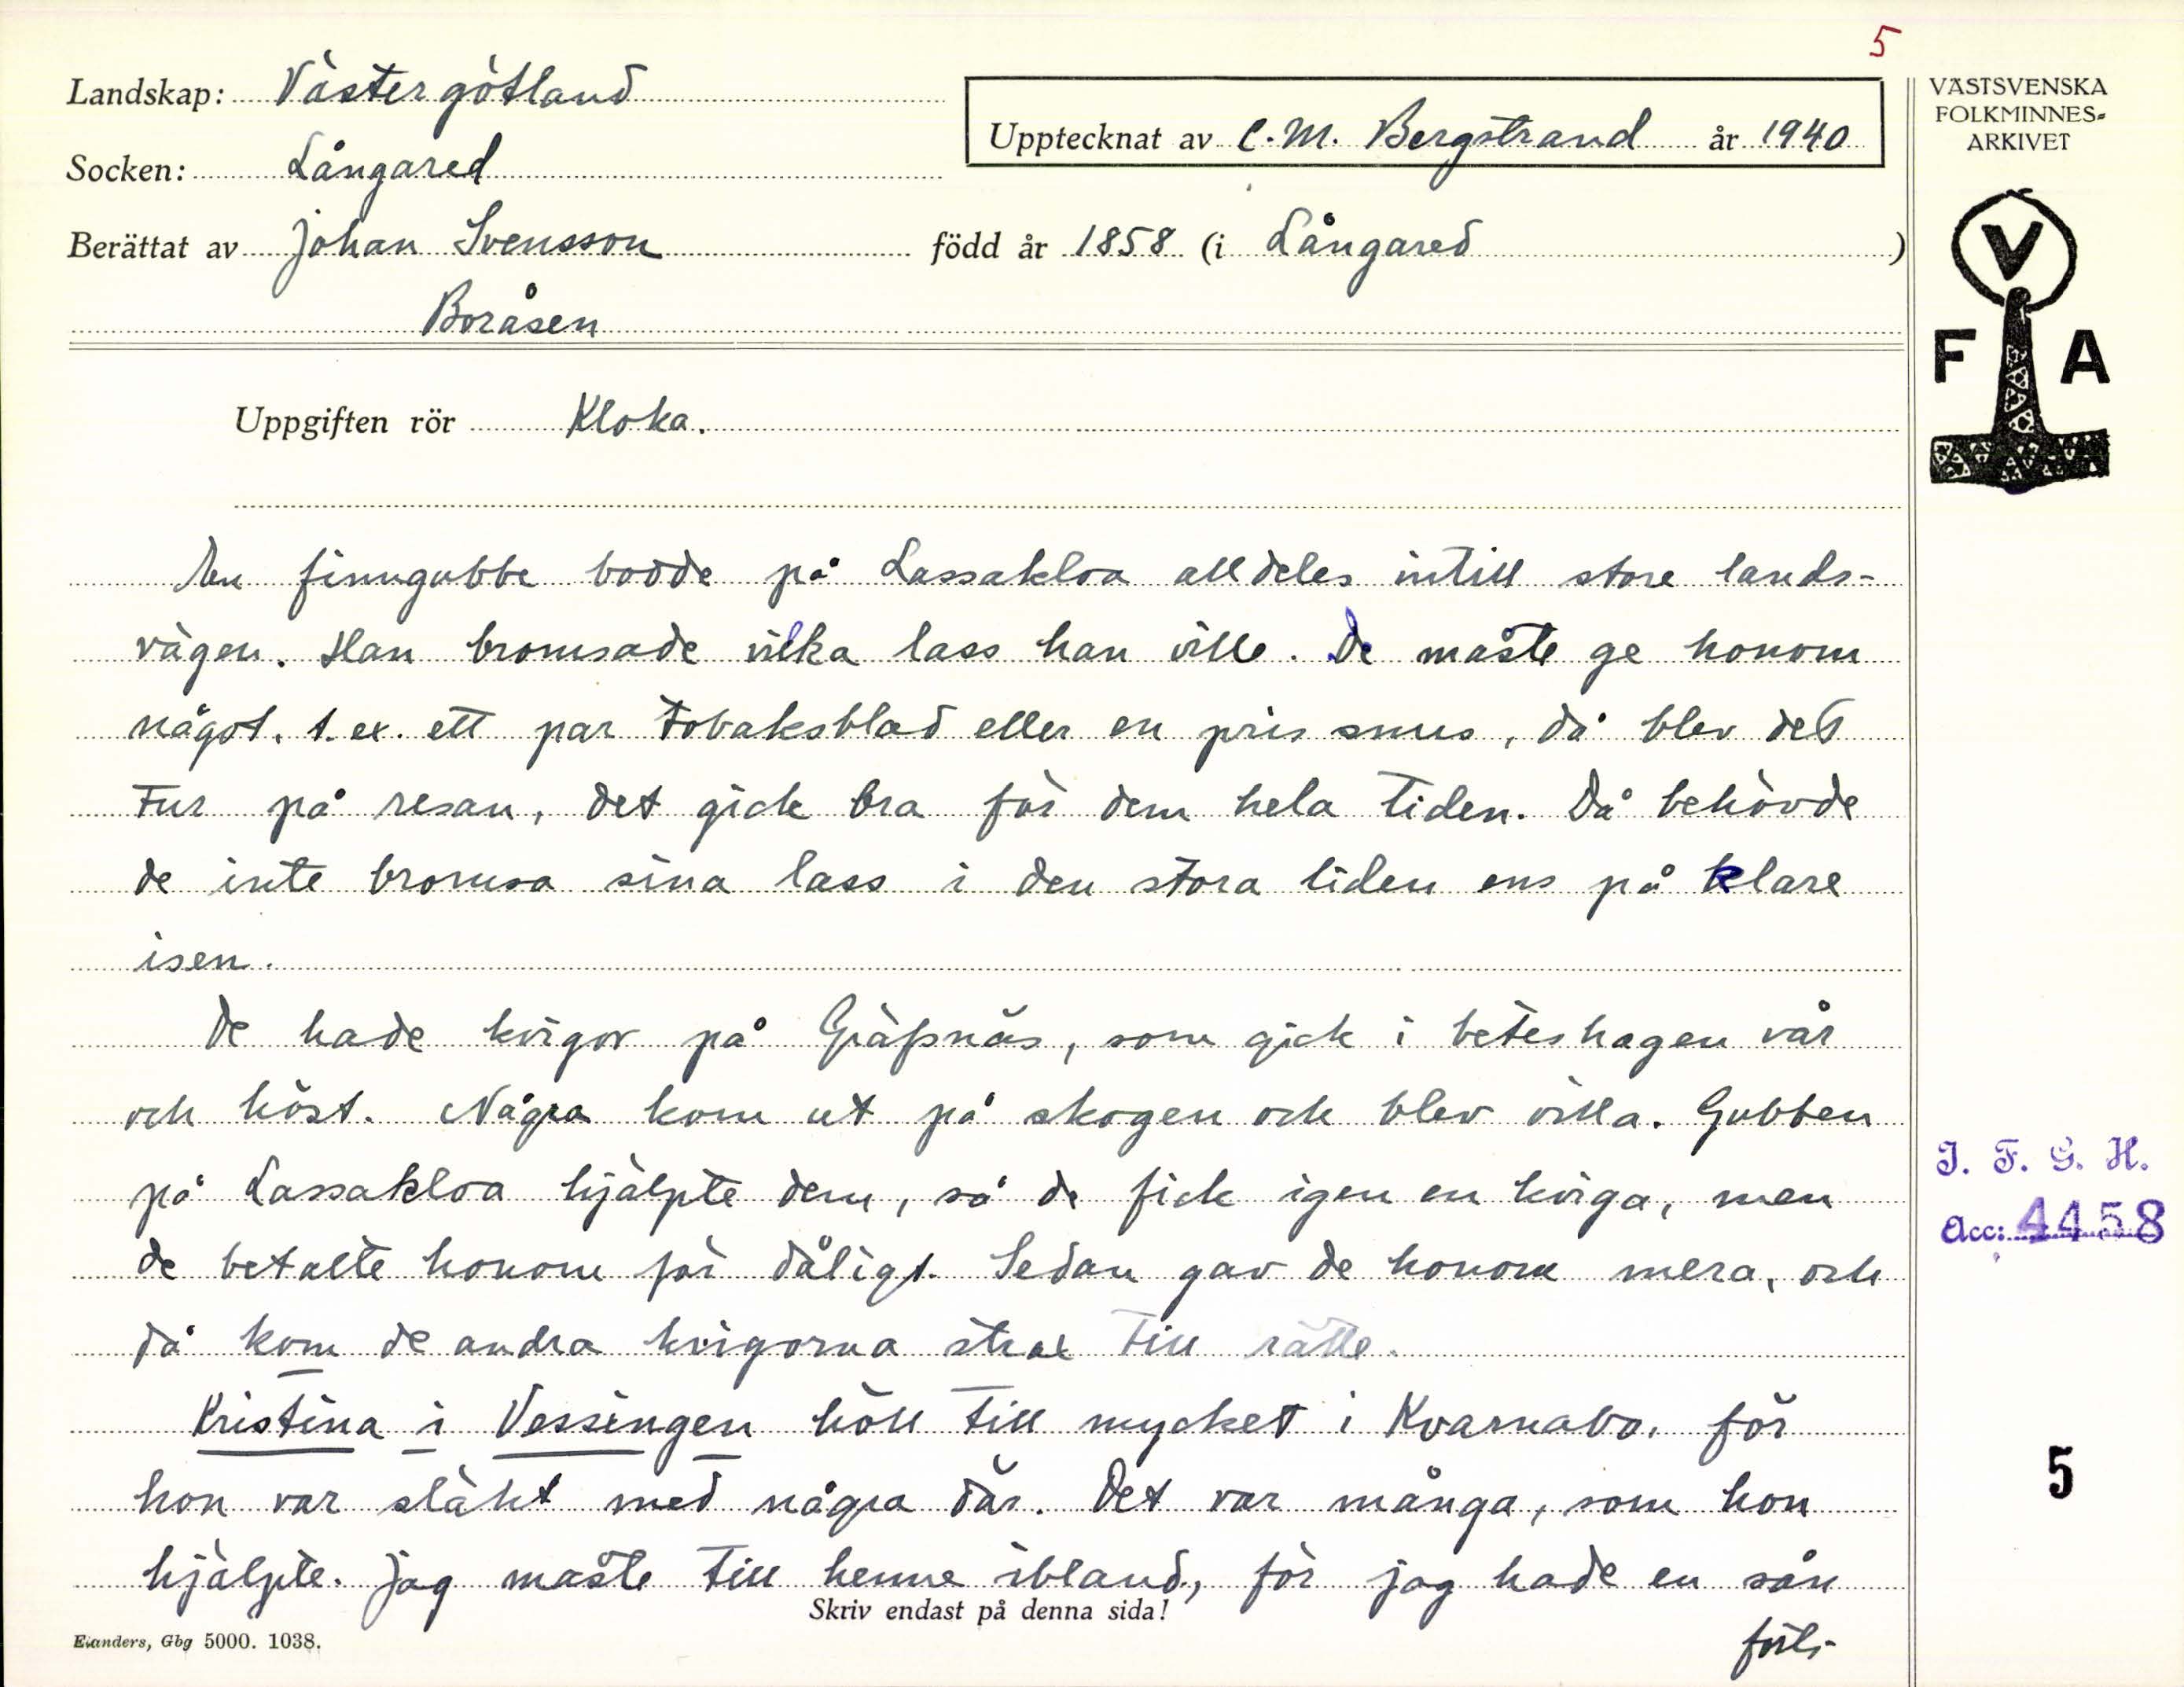 5
Landskap: Västergötland
Upptecknat av C. M. Bergstrand år 1940
Socken: Långared
Berättat av Johan Svensson född år 1858 (i Långared)
Boråsen
VÄSTSVENSKA
FOLKMINNES-
ARKIVET
V
F A
Uppgiften rör Kloka.
En finngubbe bodde på Lassakloa alldeles intill store lands-
vägen. Han bromsade vilka lass han ville. De måste ge honom
något, t. ex. ett par tobaksblad eller en pris snus, då blev det
tur på resan, det gick bra för dem hela tiden. Då behövde
de inte bromsa sina lass i den stora liden ens på klare
isen.
De hade kvigor på Gräfsnäs, som gick i beteshagen vår
och höst. Några kom ut på skogen och blev villa. Gubben
på Lassakloa hjälpte dem, så de fick igen en kviga, men
de betalte honom för dåligt. Sedan gav de honom mera, och
då kom de andra kvigorna strax till rätte.
Kristina i Vessingen höll till mycket i Kvarnabo, för
hon var släkt med några där. Det var många, som hon
hjälpte. Jag måste till henne ibland, för jag hade en sån
Skriv endast på denna sida!
forts.
Elanders, Gbg 5000. 1038.
I. F. G. H.
Acc: 4458
5